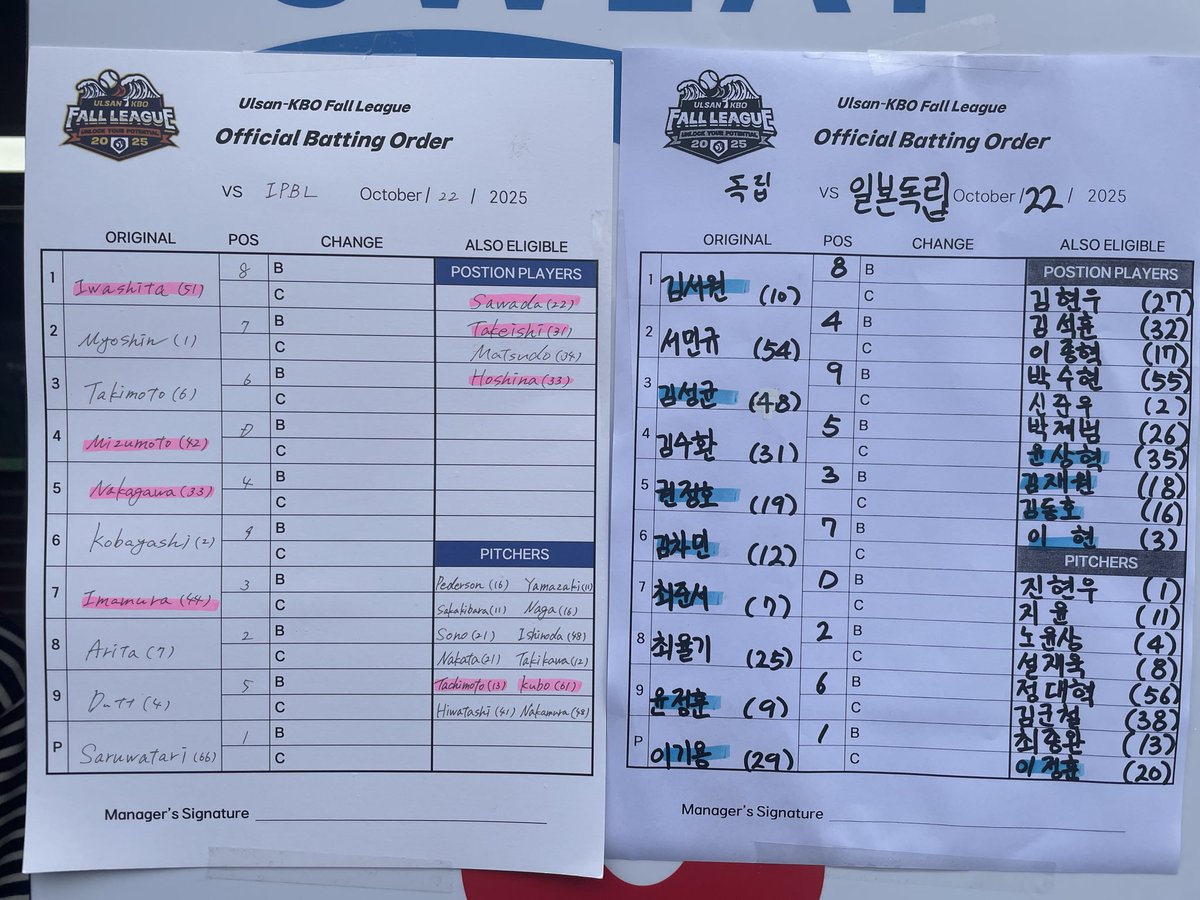 SWEAT
ULSAN KBO
FALL LEAGUE
UNLOCK YOUR POTENTIAL
2025
Ulsan-KBO Fall League
Official Batting Order
VS IPBL October / 22 / 2025
ORIGINAL POS CHANGE ALSO ELIGIBLE
1 Iwashita (51) 8 B C
2 Myoshin (1) 7 B C
3 Takimoto (6) 6 B C
4 Mizumoto (42) D B C
5 Nakagawa (33) 4 B C
6 Kobayashi (2) 9 B C
7 Imamura (44) 3 B C
8 Arita (7) 2 B C
9 Dutt (4) 5 B C
P Saruwatari (66) 1 B C
POSTION PLAYERS
Sawada (22)
Takeishi (31)
Matsudo (34)
Hoshina (33)
PITCHERS
Pederson (16) Yamazaki (11)
Sakakibara (11) Naga (16)
Sono (21) Ishinoda (48)
Nakata (21) Takikawa (12)
Tachimoto (13) Kubo (61)
Hiwatashi (41) Nakamura (48)
Manager's Signature
ULSAN KBO
FALL LEAGUE
UNLOCK YOUR POTENTIAL
2025
Ulsan-KBO Fall League
Official Batting Order
독립 VS 일본독립 October / 22 / 2025
ORIGINAL POS CHANGE ALSO ELIGIBLE
1 김서원 (10) 8 B C
2 서민규 (54) 4 B C
3 김성균 (48) 9 B C
4 김수환 (31) 5 B C
5 권정호 (19) 3 B C
6 김차민 (12) 7 B C
7 최준서 (7) D B C
8 최율기 (25) 2 B C
9 윤정훈 (9) 6 B C
P 이기용 (29) 1 B C
POSTION PLAYERS
김현우 (27)
김석훈 (32)
이종혁 (17)
박수현 (55)
신준우 (2)
박제범 (26)
윤상혁 (35)
김재원 (18)
김동호 (16)
이현 (3)
PITCHERS
진현우 (1)
지윤 (11)
노윤상 (4)
설재욱 (8)
정대혁 (56)
김균철 (38)
최종완 (13)
이정훈 (20)
Manager's Signature